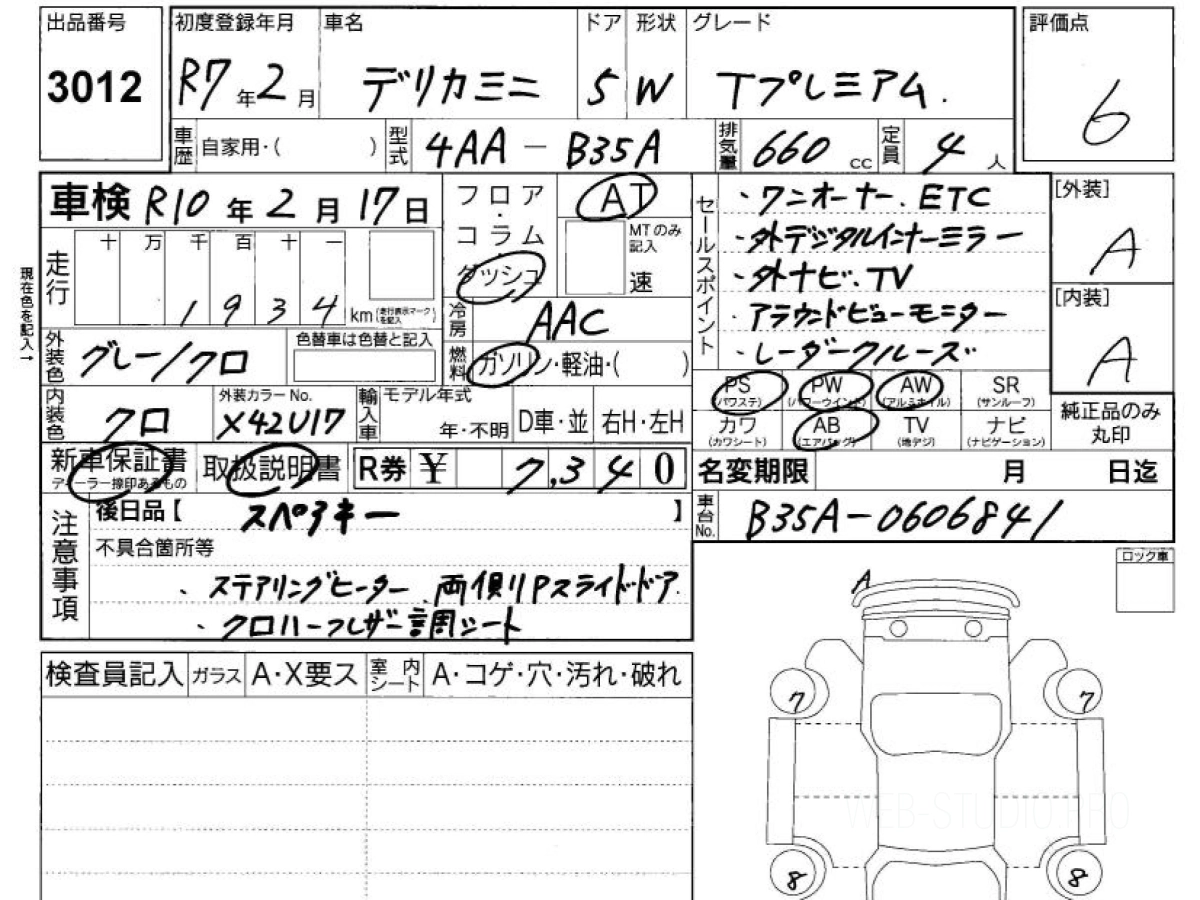 出品番号 初度登録年月 車名 ドア 形状 グレード 評価点
3012 R7年2月 デリカミニ 5 W Tプレミアム. 6
車歴 自家用・( ) 型式 4AA-B35A 排気量 660 cc 定員 4人
車検 R10年2月17日
フロア・コラム・ダッシュ
AT
MTのみ記入
速
セールスポイント
・ワンオーナー.ETC
・外デジタルインナーミラー
・外ナビ.TV
・アラウンドビューモニター
・レーダークルーズ
[外装]
A
[内装]
A
現在色を記入→
走行 十 万 千 百 十 一
1934 km (走行表示マークを記入)
冷房 AAC
外装色 グレー/クロ
色替車は色替と記入
燃料 ガソリン・軽油・( )
PS (パワステ) PW (パワーウインド) AW (アルミホイル) SR (サンルーフ)
カワ (カワシート) AB (エアバッグ) TV (地デジ) ナビ (ナビゲーション)
純正品のみ
丸印
内装色 クロ 外装カラーNo. X42U17 輸入車 モデル年式 年・不明 D車・並 右H・左H
新車保証書 ディーラー捺印あるもの 取扱説明書 R券 ¥ 7,340
名変期限 月 日迄
注意事項
後日品【 スペアキー 】
車台No. B35A-0606841
不具合箇所等
、ステアリングヒーター 両側リPスライドドア
・クロハーフレザー調シート
ロック車
A
7 7
検査員記入 ガラス A・X要ス 室内シート A・コゲ・穴・汚れ・破れ
WEB-STUDIO.PRO
8 8